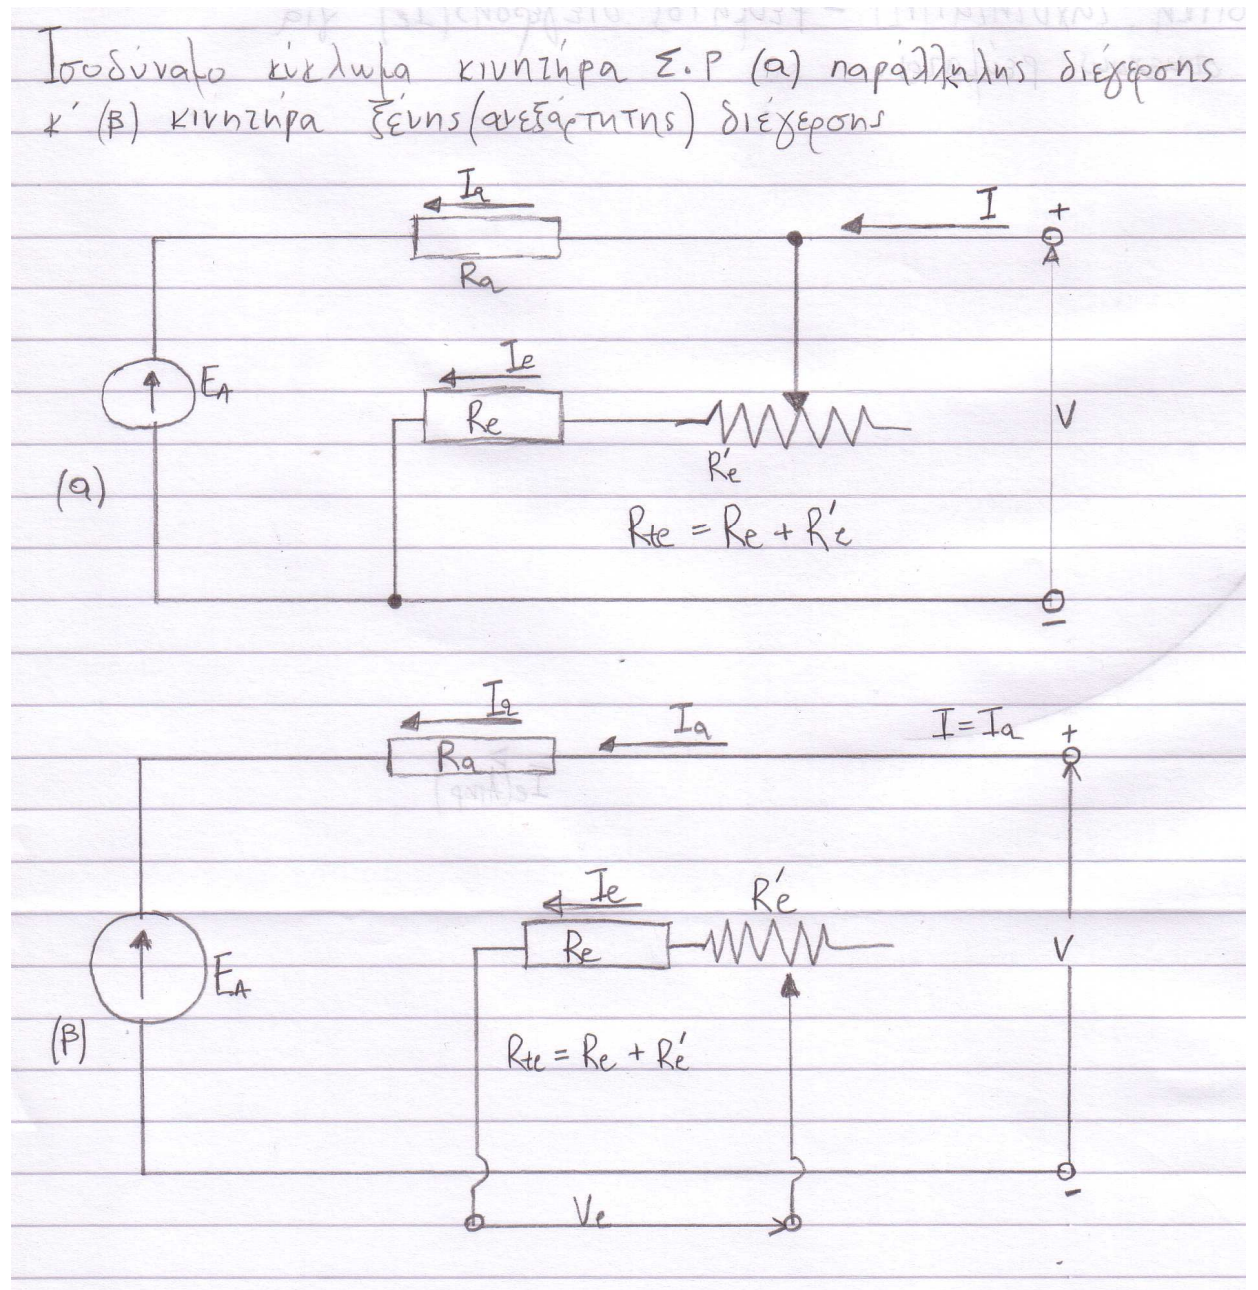 Ισοδύναμο κύκλωμα κινητήρα Σ.Ρ (α) παράλληλης διέγερσης
κ' (β) κινητήρα ξένης (ανεξάρτητης) διέγερσης
Ia
I
+
Ra
Ie
EA
Re
V
R'e
(α)
Rte = Re + R'e
−
Ia
Ia
I = Ia
+
Ra
Ie
R'e
Re
V
EA
(β)
Rte = Re + R'e
−
Ve